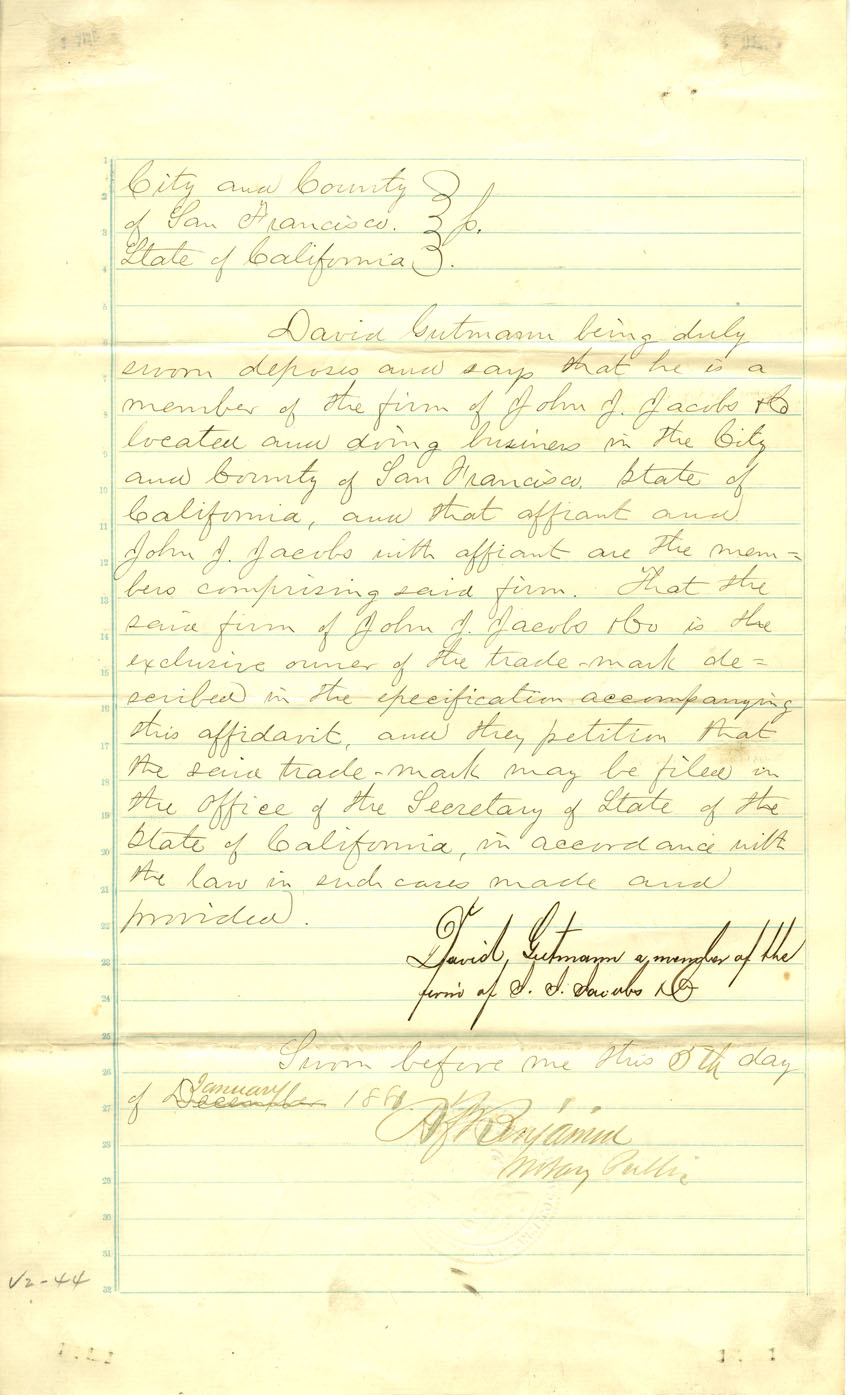 City and County
of San Francisco. ss.
State of California.
David Gutmann being duly
sworn deposes and says that he is a
member of the firm of John J. Jacobs & Co
located and doing business in the City
and County of San Francisco. State of
California, and that affiant and
John J. Jacobs with affiant are the mem=
bers comprising said firm. That the
said firm of John J. Jacobs & Co is the
exclusive owner of the trade-mark de=
scribed in the specification accompanying
this affidavit, and they petition that
the said trade-mark may be filed in
the office of the Secretary of State of the
State of California, in accordance with
the law in such cases made and
provided.
David Gutmann a member of the
firm of J. J. Jacobs & Co
Sworn before me this 5th day
January
of December 1881.
Benjamin
Notary Public
V2-44